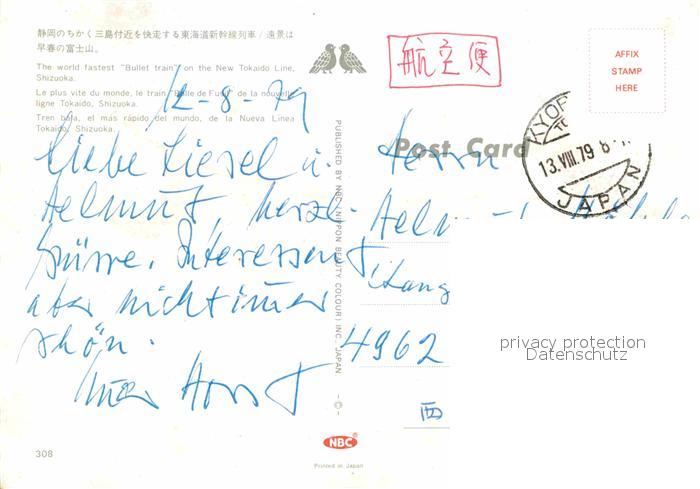 静岡のちかく三島付近を快走する東海道新幹線列車/遠景は
早春の富士山。
The world fastest "Bullet train" on the New Tokaido Line,
Shizuoka.
Le plus vite du monde, le train "Balle de Fusil" de la nouvelle
ligne Tokaido, Shizuoka.
Tren bala, el más rápido del mundo, de la Nueva Línea
Tokaido, Shizuoka.
12-8-79
Liebe Liesel u.
Helmut, herzl.
Grüsse. Interessant
aber nicht immer
schön.
Euer Horst
308
PUBLISHED BY NBC (NIPPON BEAUTY COLOUR) INC. JAPAN
NBC
Printed in Japan
航空便
AFFIX
STAMP
HERE
Post Card
13.VIII.79
JAPAN
Herrn
4962
西
privacy protection
Datenschutz